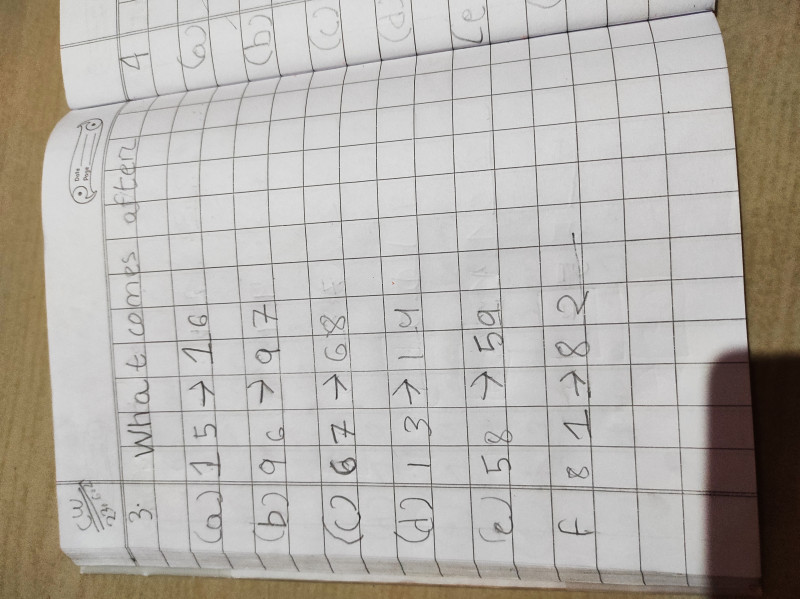 Date
Page
CW
3. What comes after
(a) 15 → 16
(b) 96 → 97
(c) 67 → 68
(d) 13 → 14
(e) 58 → 59
f 81 → 82
4
(a)
(b)
(c)
(d
(e